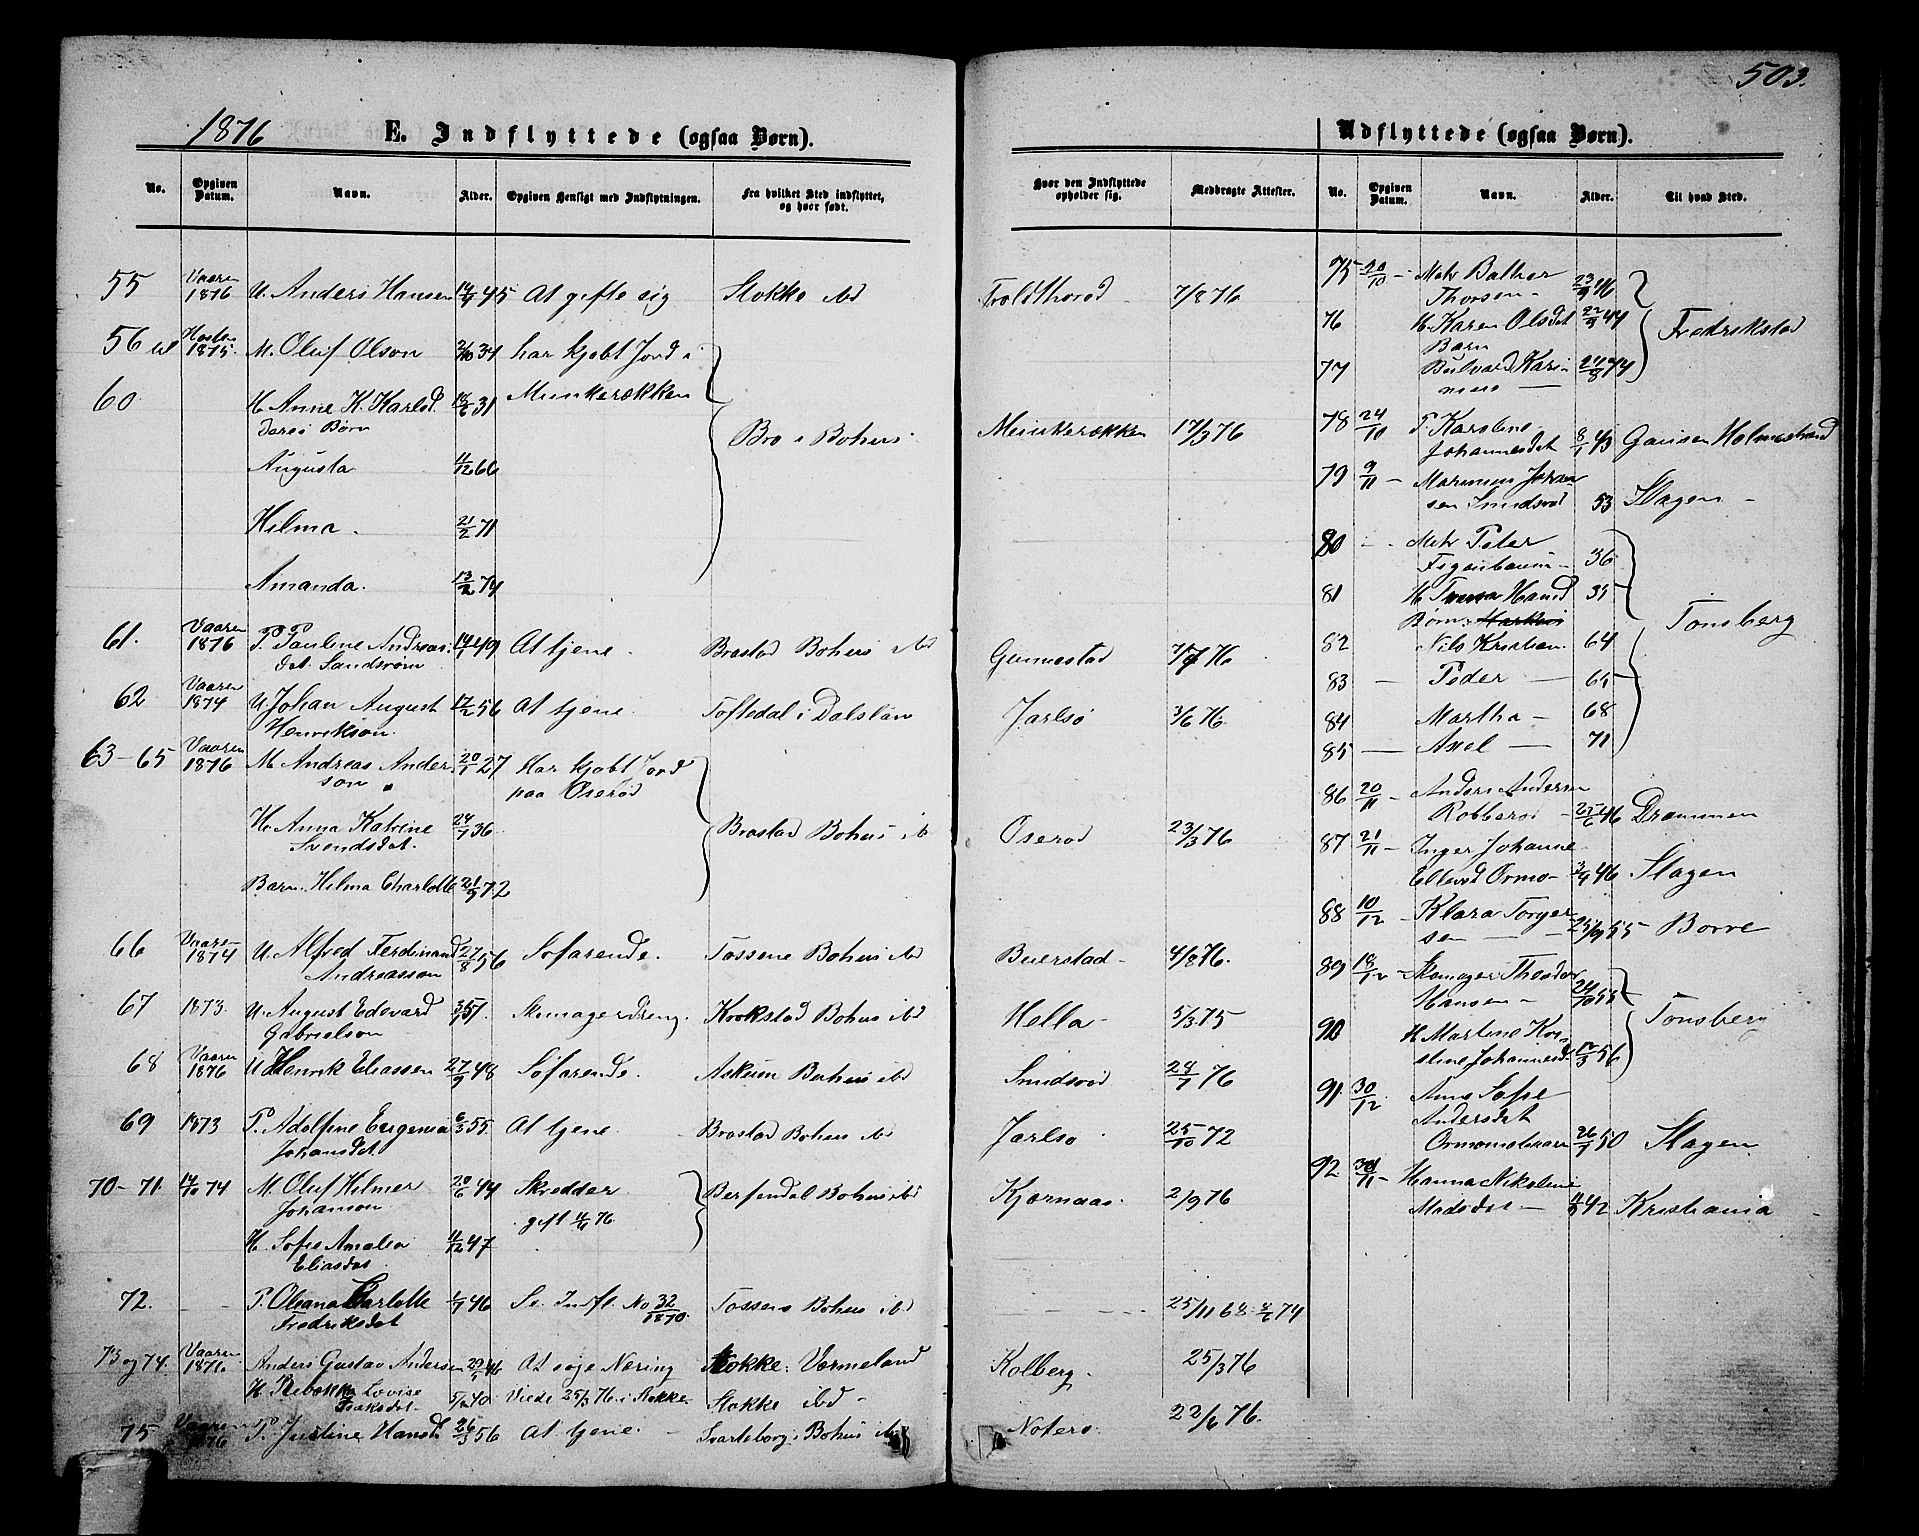 503.
1876 E. Indflyttede (ogsaa Børn).
Udflyttede (ogsaa Børn).
No. Opgiven Datum. Navn. Alder. Opgiven Hensigt med Indflytningen. Fra hvilket Sted indflyttet, og hvor født.
Hvor den Indflyttede opholder sig. Medbragte Attester. No. Opgiven Datum. Navn. Alder. Til hvad Sted.
55 Vaaren 1876 U. Anders Hansen 14/9 45 At gifte sig Stokke ibd 7/8 76
56 til Høsten 1875. M. Oluf Olson 2/10 34 har kjøbt Jord i
60 H. Anne K. Karlsd. 18/6 31 Munkerækken Bro i Bohus. Munkerækken 17/3 76
Deres Børn
Augusta 11/12 66
Hilma. 21/2 71
Amanda. 13/2 74
61. Vaaren 1876 P. Pauline Andreas- 14/1 49 At tjene. Brastad Bohus ibd Gunnestad 7/7 76
det. Sandstrøm
62 Vaaren 1874 U. Johan August 17/2 56 At tjene. Töftedal i Dalslan Jarlsø 3/6 76.
Henrikson.
63-65 Vaaren 1876 M. Andreas Ander- 20/1 27 Har kjøbt Jord
son paa Oserød
H. Anna Katrine 24/7 36. Brastad Bohus ib Oserød 23/3 76
Svendsdet.
Barn. Hilma Charlotte 21/9 72
66 Vaaren 1874 U. Alfred Ferdinand 27/8 56 Søfarende. Tossene Bohus ibd Buerstad 4/8 76.
Andreasson
67 1873. U. August Edevard 3/1 57. Skomagerdreng. Krokstad Bohus ibd Hella 5/3 75
Gabrielson
68 Vaaren 1876 U. Henrik Eliassen 27/9 48 Søfarende. Askum Bohus ibd Smidsrød 28/7 76
69 1873 P. Adolfine Eugenia 6/3 55. At tjene. Brastad Bohus ibd Jarlsø 25/10 72
Johansdet
70-71. 14/10 74 M. Oluf Hilmer 20/6 44 Skredder Berfendal Bohus ibd Kjærnaas. 2/9 76
Johanson gift 11/6 76.
H. Sofie Amalia 11/12 47
Eliasdet
72. - - P. Oleana Charlotte 1/7 46 Se. Indfl. No 32/1870. Tossene Bohus ibd - - - 25/11 68. 8/6 74
Fredriksdet
73 og 74. Vaaren 1876 Anders Gustav Andersen 29/5 46 At søge Næring Stokke. Vermeland Kolberg. 25/3 76
H. Rebekka Lovise 5/2 40 Viede 25/3 76. i Stokke Stokke ibd -
Isaksdet
75 Vaaren 1876 P. Justine Hansd 26/3 56 At tjene. Svarteborg. Bohus ibd Nøterø. 22/6 76.
75 20/10 - Mtr Balther 23/9 46
Thorsen
76 H. Karen Olsdet 22/9 44 Fredrikstad
Barn
77 Kari- 24/8 74
78 24/10 P. Karoline
Johannesdet 8/1 43 Holmestrand
79 9/11 -
sen Smidsrød 53 Slagen -
80 - Mtr Peter
Figenbaum - 36
81 H. Hansd 35
Børn. Tønsberg
82 Nils Kristian. 64
83 - Peder - 65
84 Martha - 68
85 - Axel - 71
86 20/11 - Anders Andersen
Robberød - 25/6 46 Drammen
87 21/11 - Inger Johanne
Ellevsd Ormø - 3/4 46 Slagen
88 10/12 - Klara Torger-
sen 23/9 55 Borre
89 18/12 - Skomager Theodor
Hansen - 24/10 58
90 H. Martine Kri- Tønsberg
stine Johannesd 12/3 56
91. 30/12 - Anne Sofie
Andersdet
26/7 50 Slagen
92. 30/11 - Hanna Nikoline
Madsdet - 11/8 42 Kristiania